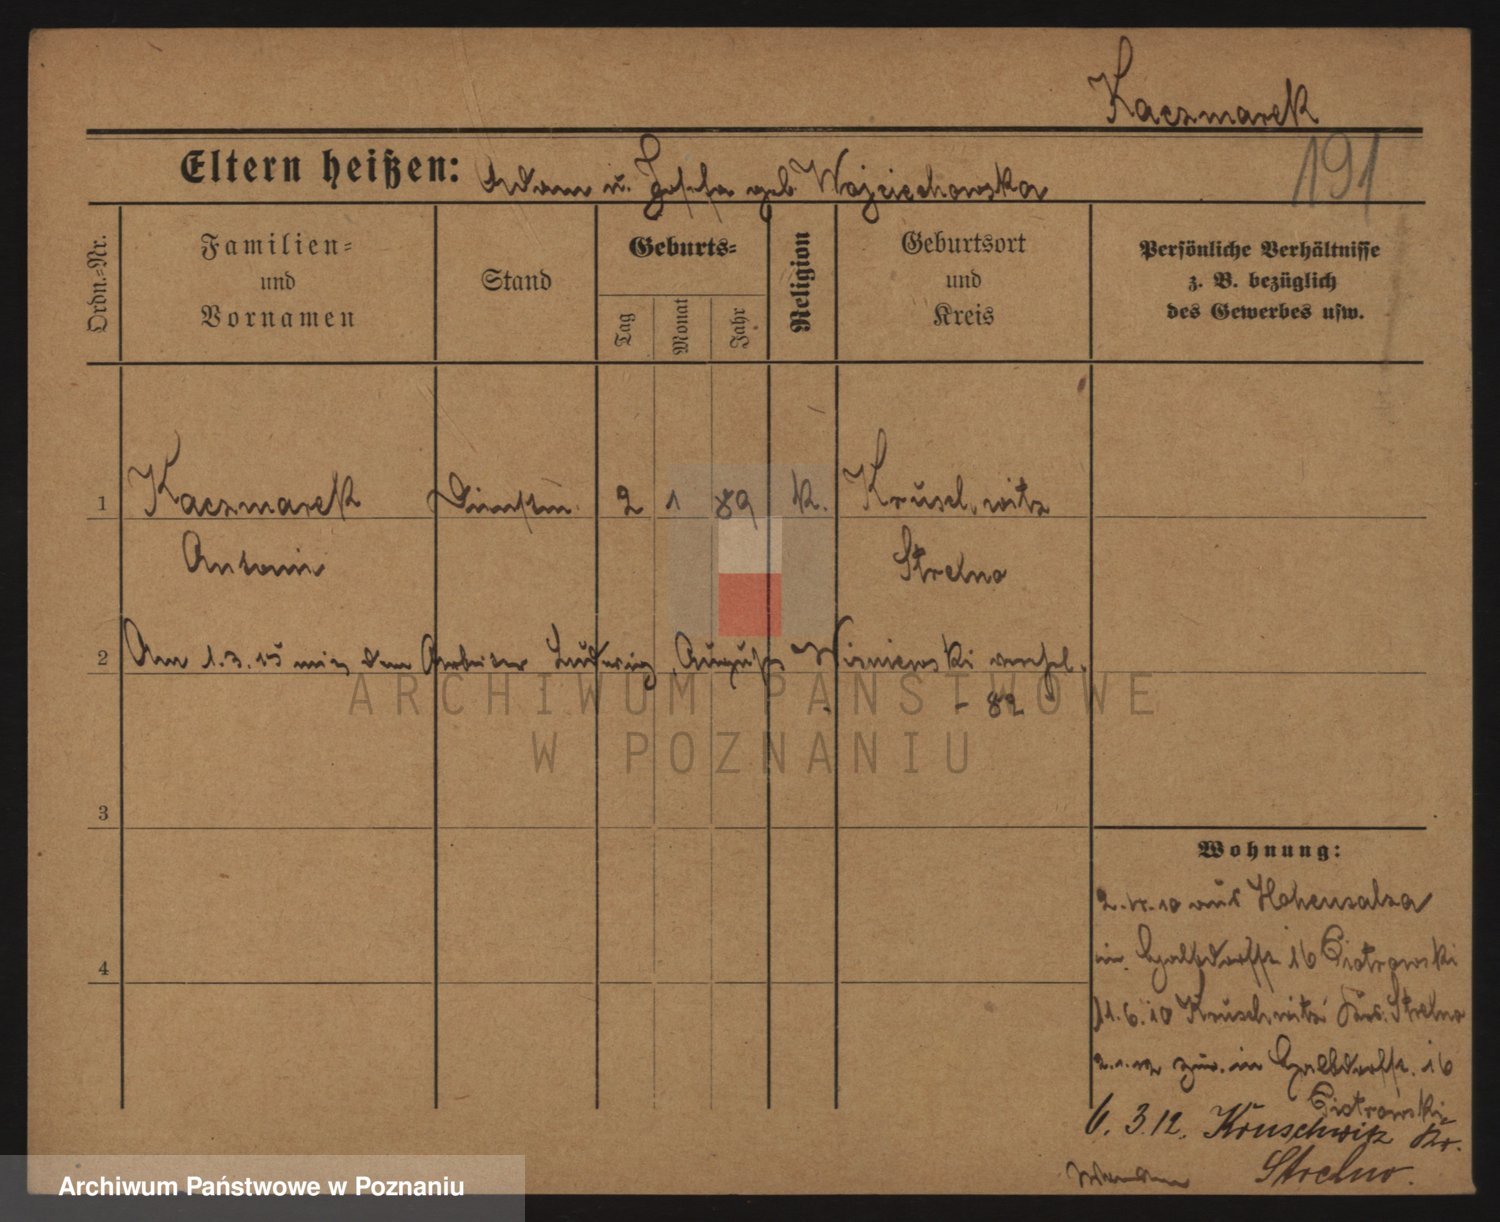 Kaczmarek
191
Eltern heißen: Adam u. Josefa geb. Wojciechowska
Ordn.-Nr.
Familien- und Vornamen
Stand
Geburts-
Tag
Monat
Jahr
Religion
Geburtsort und Kreis
Persönliche Verhältnisse
z. B. bezüglich
des Gewerbes usw.
1 Kaczmarek Dienstm. 2 1 89 k. Kruschwitz
Antonie Strelno
2 Am 1.3.15 mit dem Arbeiter Ludwig August Wisniewski verehel.
- 82
ARCHIWUM PAŃSTWOWE
W POZNANIU
3
Wohnung:
aus Hohensalza
4
16 Piotrowski
11.6.10 Kruschwitz Krs. Strelno
2.1.12 zur. in 16
Piotrowski
6.3.12. Kruschwitz Kr.
Strelno.
Archiwum Państwowe w Poznaniu